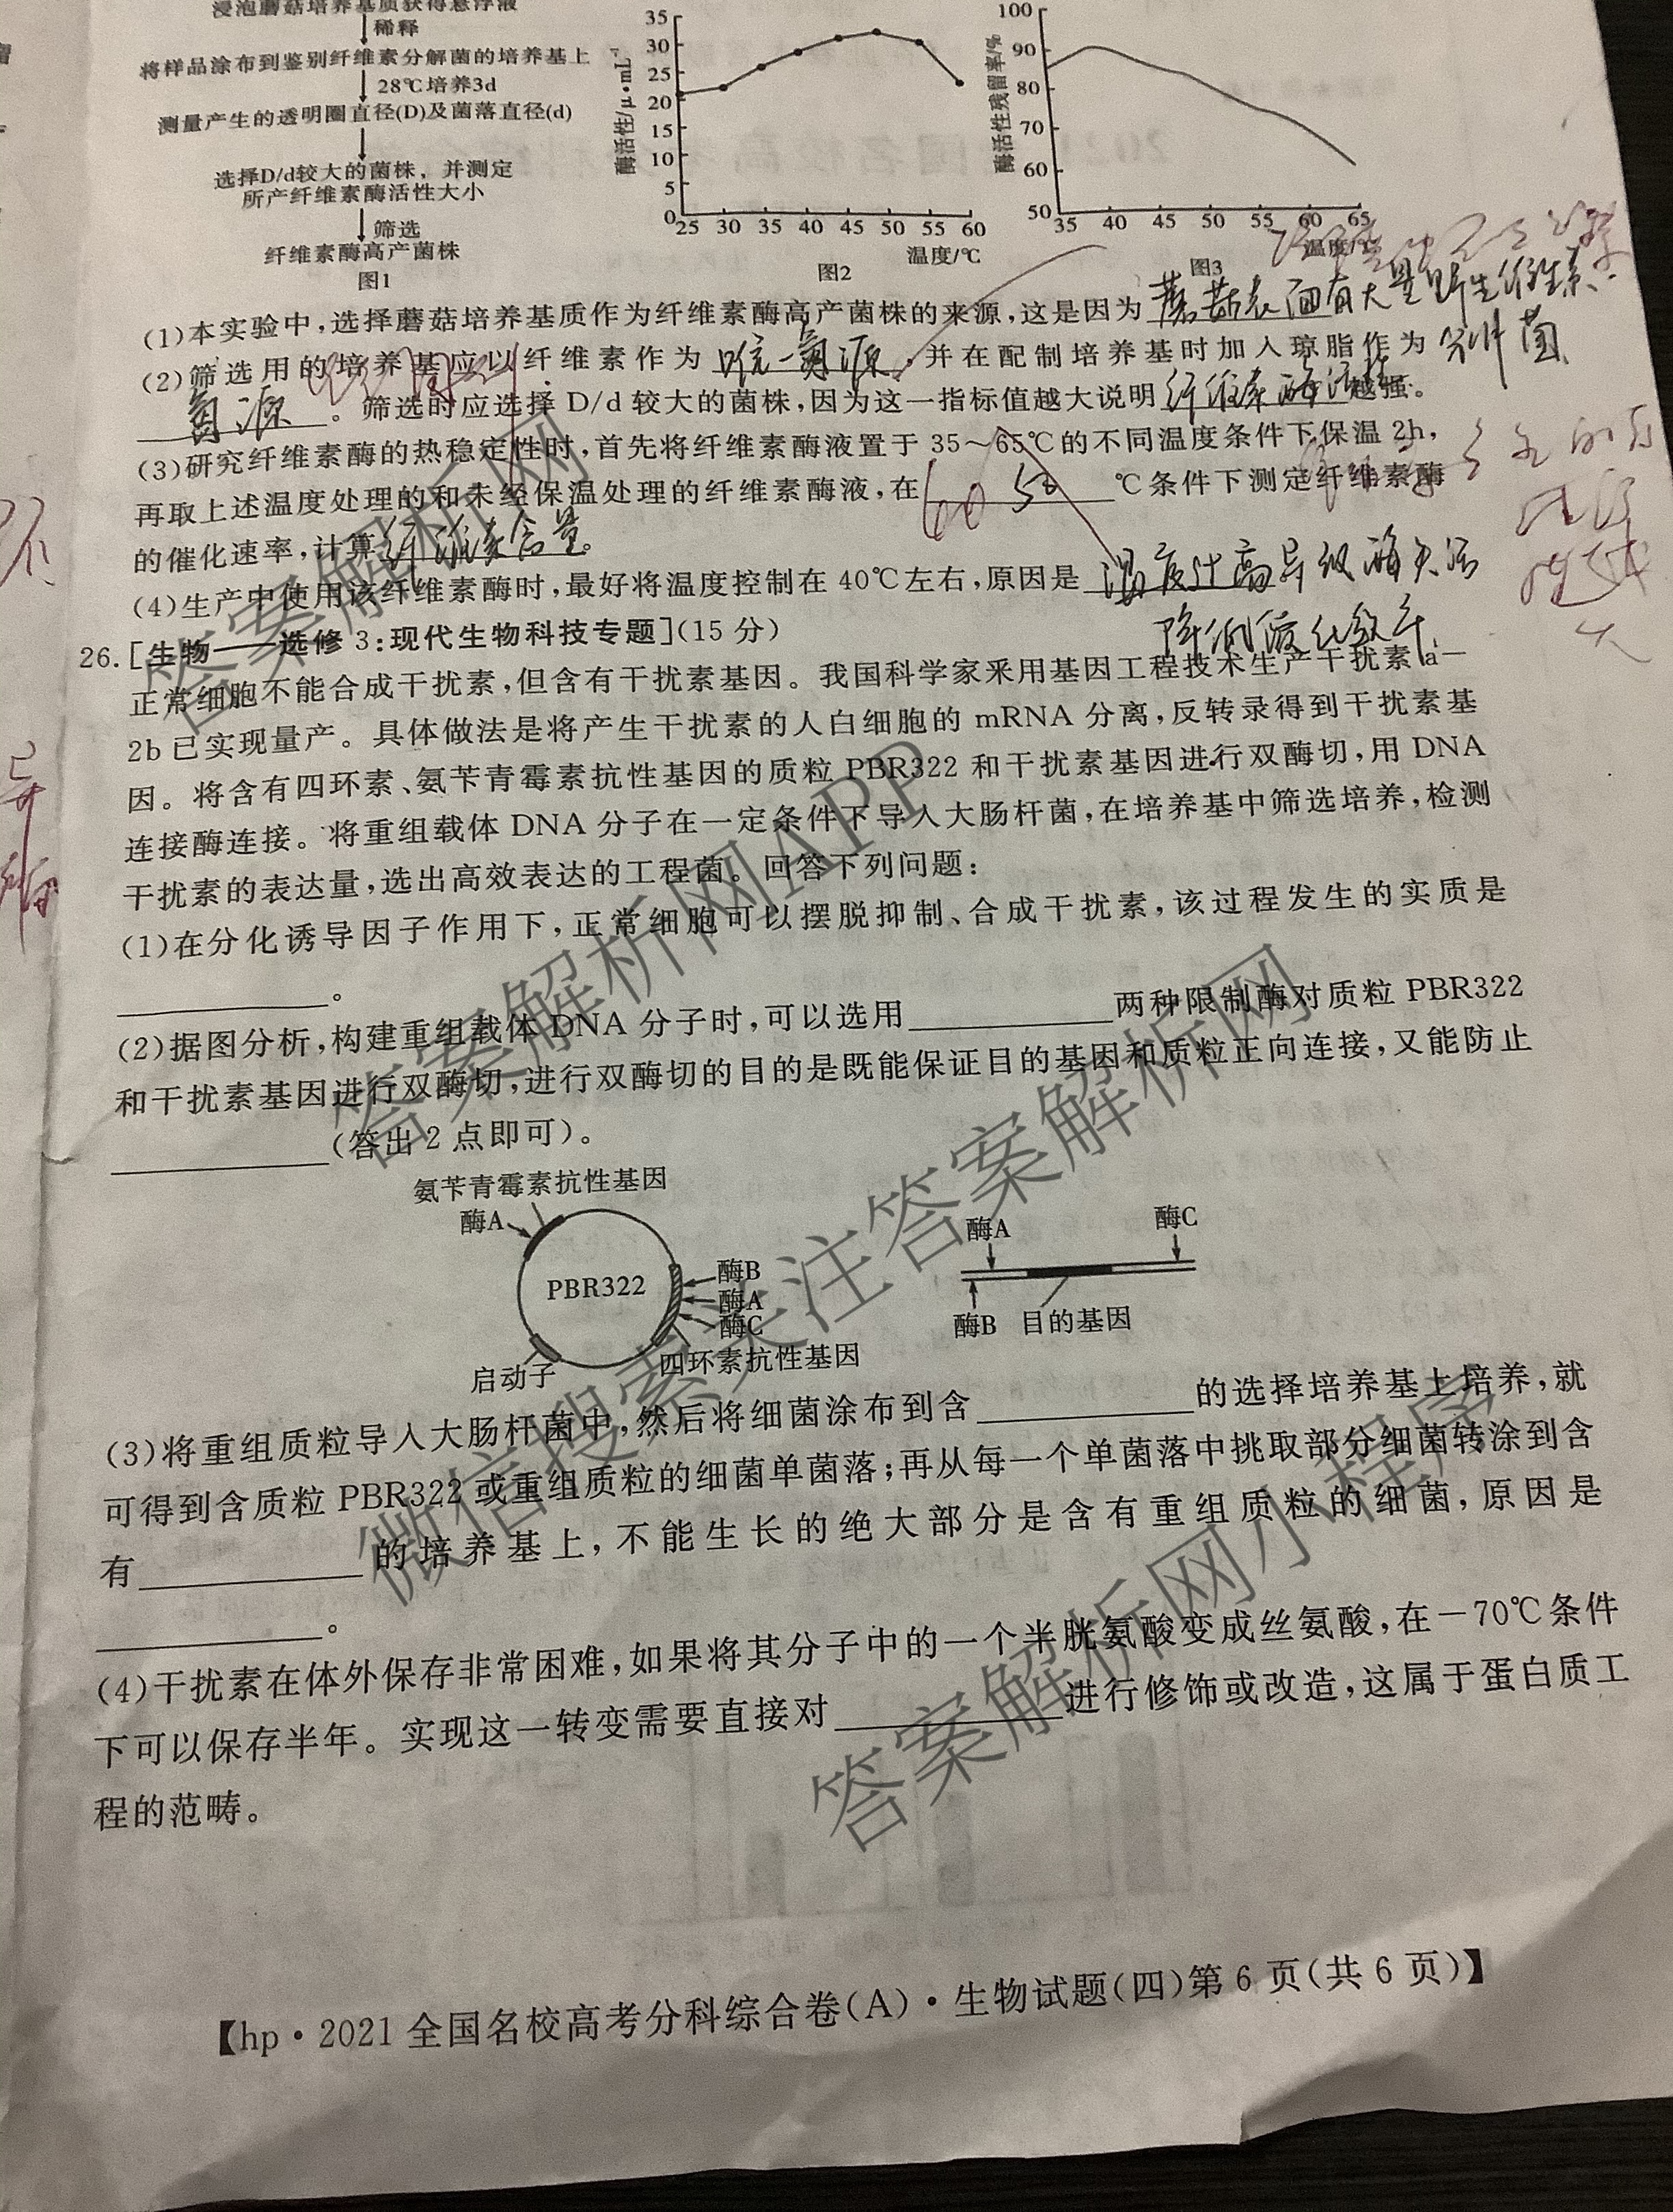 浸泡蘑菇培养基质获得悬浮液
稀释
将样品涂布到鉴别纤维素分解菌的培养基上
28℃培养3d
测量产生的透明圈直径(D)及菌落直径(d)
选择D/d较大的菌株，并测定
所产纤维素酶活性大小
筛选
纤维素酶高产菌株
图1
35
30
25
20
15
10
5
0
酶活性/μ·mL⁻¹
25 30 35 40 45 50 55 60
温度/℃
图2
100
90
80
70
60
50
酶活性残留率/%
35 40 45 50 55 60 65
温度/℃
图3
(1)本实验中,选择蘑菇培养基质作为纤维素酶高产菌株的来源,这是因为蘑菇表面有大量野生纤维素
分解菌
(2)筛选用的培养基应以纤维素作为唯一氮源,并在配制培养基时加入琼脂作为
氮源。筛选时应选择D/d较大的菌株,因为这一指标值越大说明纤维素酶活性越强。
(3)研究纤维素酶的热稳定性时,首先将纤维素酶液置于35~65℃的不同温度条件下保温2h,
再取上述温度处理的和未经保温处理的纤维素酶液,在60 50℃条件下测定纤维素酶
的催化速率,计算纤维素含量。
(4)生产中使用该纤维素酶时,最好将温度控制在40℃左右,原因是温度过高导致酶失活
降低催化效率
26.[生物——选修3:现代生物科技专题](15分)
正常细胞不能合成干扰素,但含有干扰素基因。我国科学家采用基因工程技术生产干扰素a-
2b已实现量产。具体做法是将产生干扰素的人白细胞的mRNA分离,反转录得到干扰素基
因。将含有四环素、氨苄青霉素抗性基因的质粒PBR322和干扰素基因进行双酶切,用DNA
连接酶连接。将重组载体DNA分子在一定条件下导入大肠杆菌,在培养基中筛选培养,检测
干扰素的表达量,选出高效表达的工程菌。回答下列问题:
(1)在分化诱导因子作用下,正常细胞可以摆脱抑制、合成干扰素,该过程发生的实质是
________。
(2)据图分析,构建重组载体DNA分子时,可以选用________两种限制酶对质粒PBR322
和干扰素基因进行双酶切,进行双酶切的目的是既能保证目的基因和质粒正向连接,又能防止
________(答出2点即可)。
氨苄青霉素抗性基因
酶A
PBR322
酶B
酶A
酶C
启动子
四环素抗性基因
酶A
酶C
酶B
目的基因
(3)将重组质粒导入大肠杆菌中,然后将细菌涂布到含________的选择培养基上培养,就
可得到含质粒PBR322或重组质粒的细菌单菌落;再从每一个单菌落中挑取部分细菌转涂到含
有________的培养基上,不能生长的绝大部分是含有重组质粒的细菌,原因是
________。
(4)干扰素在体外保存非常困难,如果将其分子中的一个半胱氨酸变成丝氨酸,在-70℃条件
下可以保存半年。实现这一转变需要直接对________进行修饰或改造,这属于蛋白质工
程的范畴。
【hp·2021全国名校高考分科综合卷(A)·生物试题(四)第6页(共6页)】
答案解析网
答案解析网APP
微信搜索关注答案解析网
答案解析网小程序